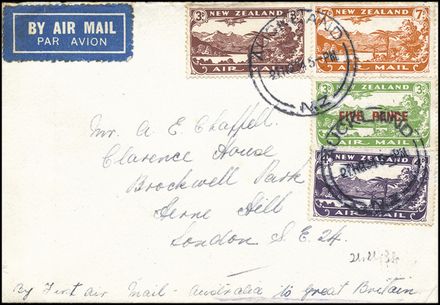 BY AIR MAIL
PAR AVION
3D NEW ZEALAND
AIR MAIL
NEW ZEALAND 7D
AIR MAIL
3D NEW ZEALAND
FIVE PENCE
AIR MAIL
NEW ZEALAND
AIR MAIL
AUCKLAND
N.Z.
AUCKLAND
Mr. A E Chappell
Clarence House
Brockwell Park
Herne Hill
London S.E. 24.
By First Air Mail - Australia to Great Britain